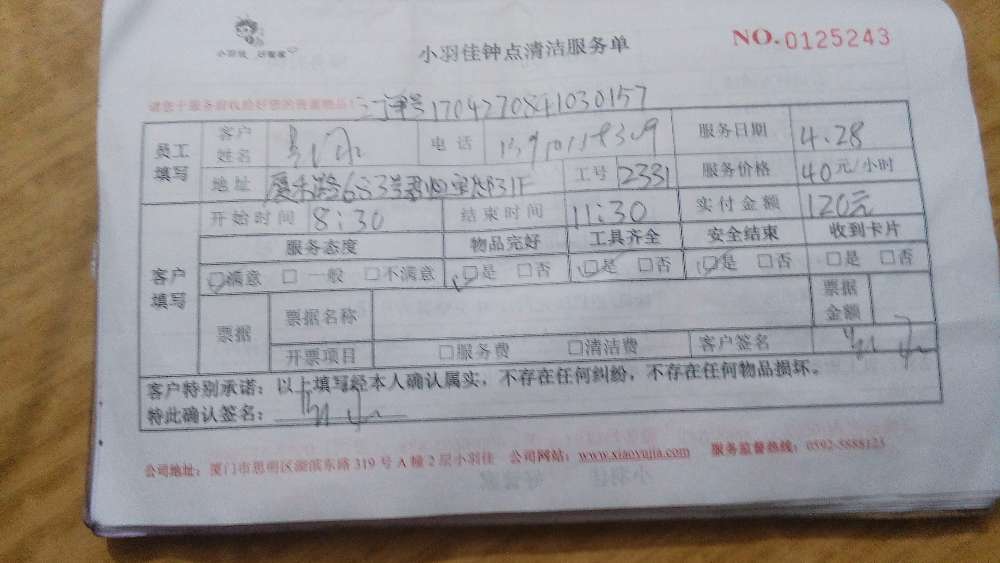 小羽佳 好管家
小羽佳钟点清洁服务单
NO.0125243
请您于服务前收捡好您的贵重物品!
订单号1704270841030157
员工填写 客户姓名 电话 服务日期 4.28
地址 厦禾路683号 31F 工号 2331 服务价格 40元/小时
客户填写 开始时间 8:30 结束时间 11:30 实付金额 120元
服务态度 物品完好 工具齐全 安全结束 收到卡片
☑满意 □一般 □不满意 ☑是 □否 ☑是 □否 ☑是 □否 □是 □否
票据 票据名称 票据金额
开票项目 □服务费 □清洁费 客户签名
客户特别承诺：以上填写经本人确认属实，不存在任何纠纷，不存在任何物品损坏。
特此确认签名：
公司地址：厦门市思明区湖滨东路319号A幢2层小羽佳 公司网站：www.xiaoyujia.com 服务监督热线：0592-5888123